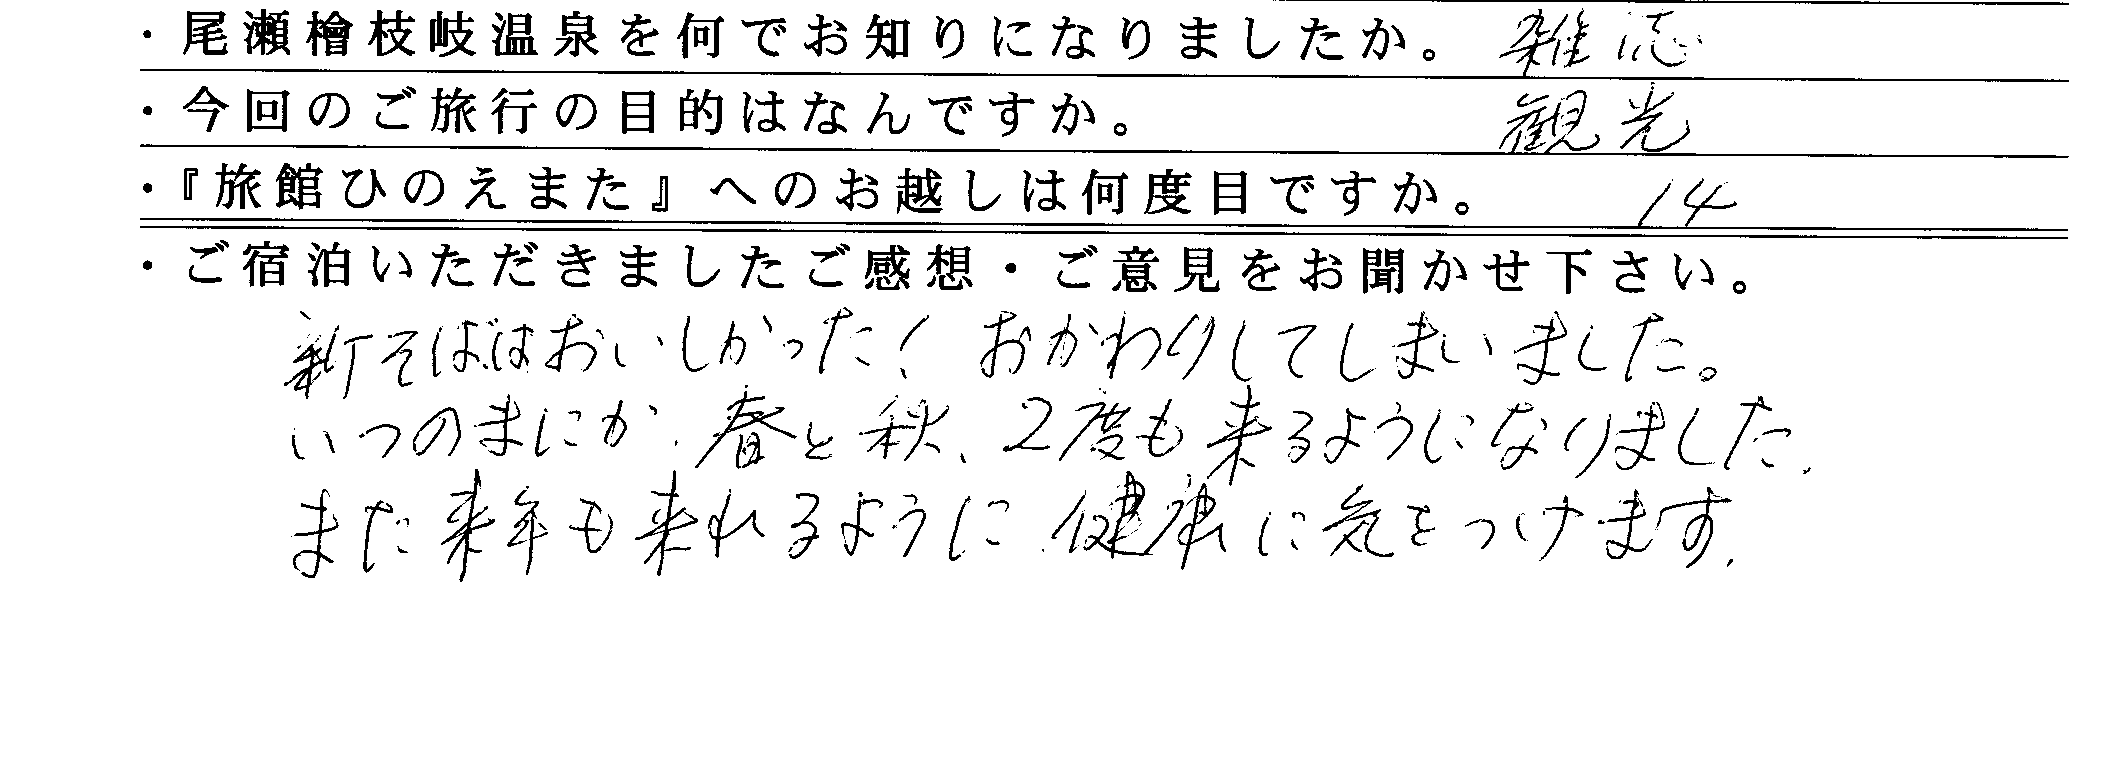 ・尾瀬檜枝岐温泉を何でお知りになりましたか。 雑誌
・今回のご旅行の目的はなんですか。 観光
・『旅館ひのえまた』へのお越しは何度目ですか。 14
・ご宿泊いただきましたご感想・ご意見をお聞かせ下さい。
新そばはおいしかった! おかわりしてしまいました。
いつのまにか、春と秋、2度も来るようになりました、
また来年も来れるように、健康に気をつけます、